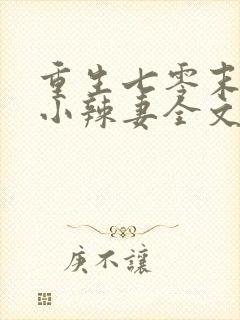 重生七零末
小辣妻全文
庚不讓